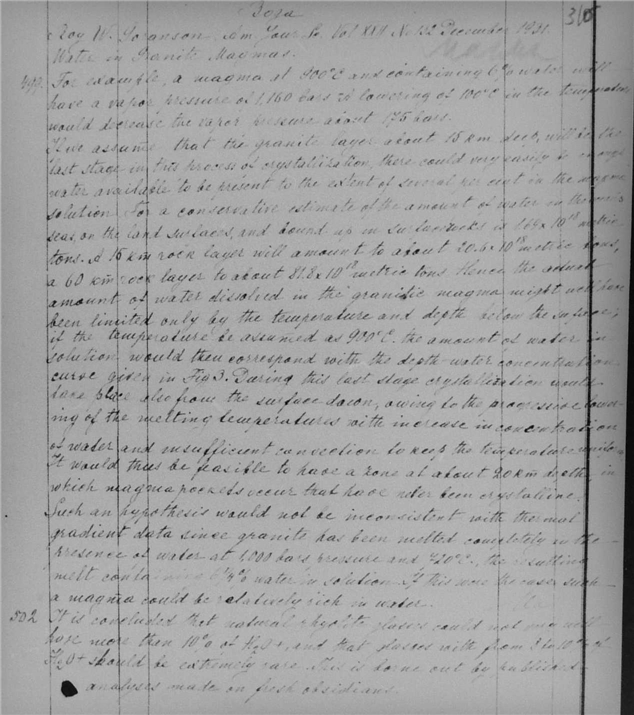 365
Roy W. Goranson. Am Jour Sc Vol XXII No 132 December 1931.
Water in Granite Magmas.
499 For example, a magma at 900°C and containing 6% water will
have a vapor pressure of 1,160 bars. A lowering of 100°C in the temperature
would decrease the vapor pressure about 175 bars.
If we assume that the granite layer about 15 km deep, will be the
last stage in this process of crystallization, there could very easily be enough
water available to be present to the extent of several per cent in the magma
solution. For a conservative estimate of the amount of water in the
seas, on the land surfaces, and bound up in surface rocks is 1.69 x 10^18 metric
tons. A 15 km rock layer will amount to about 20.6 x 10^18 metric tons,
a 60 km rock layer to about 81.8 x 10^18 metric tons. Hence the actual
amount of water dissolved in the granitic magma might well have
been limited only by the temperature and depth below the surface;
if the temperature be assumed as 900°C. the amount of water in
solution would then correspond with the depth-water concentration
curve given in Fig 3. During this last stage crystallization would
take place also from the surface down, owing to the progressive lower-
ing of the melting temperatures with increase in concentration
of water and insufficient convection to keep the temperature uniform.
It would thus be feasible to have a zone at about 20 km depth, in
which magma pockets occur that have never been crystalline.
Such an hypothesis would not be inconsistent with thermal
gradient data since granite has been melted completely in the
presence of water at 1,000 bars pressure and 720°C., the resulting
melt containing 6 1/4% water in solution. If this were the case, such
a magma could be relatively rich in water.
502 It is concluded that natural rhyolite glasses could not very well
have more then 10% of H2O+, and that glasses with from 5 to 10% of
H2O+ should be extremely rare. This is borne out by published
analyses made on fresh obsidians.